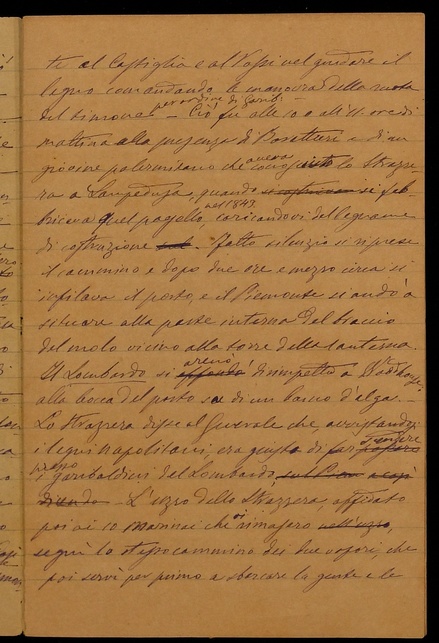 te al Castiglia e al Rossi nel guidare il
legno comandando la manovra della ruota
del timone per ordine di Garib. — Ciò fu alle 10 o all'11 ore di
mattina alla presenza di e di un
giovine palermitano che aveva conosciuto lo Strazze-
ra a Lampedusa, quando si fab-
bricava quel nel 1843, caricandovi del legname
di costruzione. Fatto silenzio si riprese
il cammino e dopo due ore e mezzo circa si
infilava il porto, e il Piemonte si andò a
situare alla parte interna del braccio
del molo vicino alla torre della lanterna.
Il Lombardo si arenò dirimpetto a
alla bocca del porto su di un banco d'alga. —
Lo Strazzera disse al Generale che, avvistandosi
i legni napolitani, era giusto di far
i garibaldini del Lombardo,
— L'uzzo dello Strazzera, affidato
poi ai 10 marinai che vi rimasero
seguì lo stesso cammino dei due vapori, che
poi servì per primo a sbarcare la gente e le